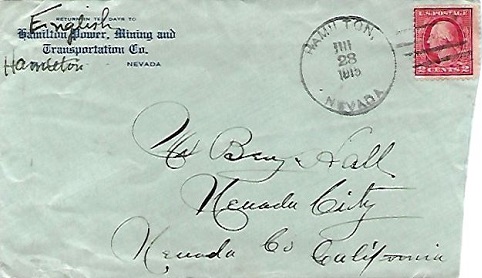 English
RETURN IN TEN DAYS TO
Hamilton Power, Mining and
Transportation Co.
Hamilton
NEVADA
HAMILTON,
28
1915
NEVADA
U.S. POSTAGE
2 CENTS 2
Mr Benj. Hall
Nevada City
Nevada Co California